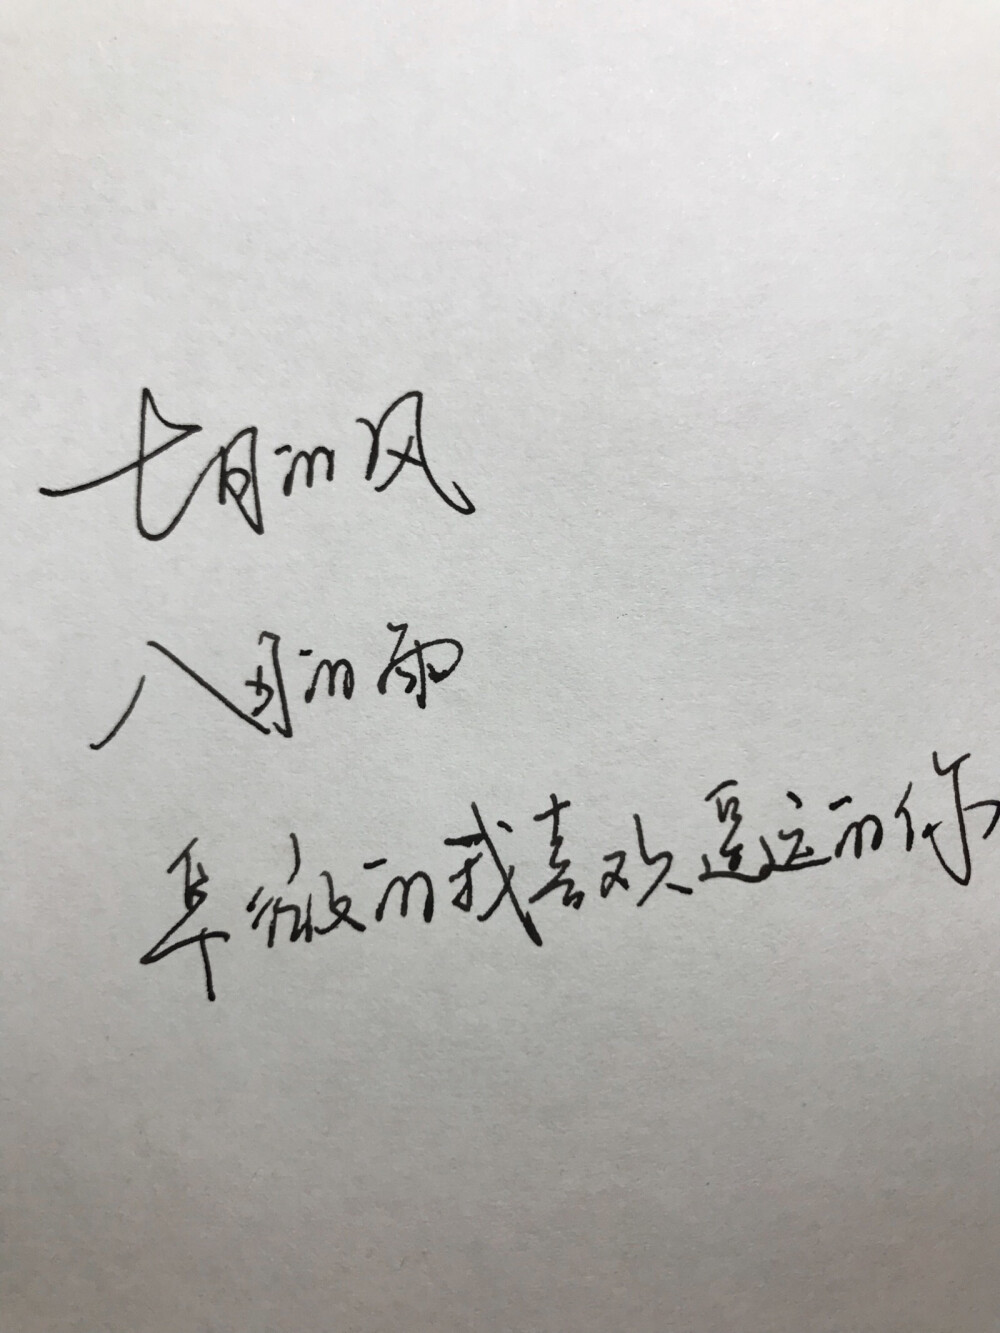 七月的风
八月的雨
卑微的我喜欢遥远的你